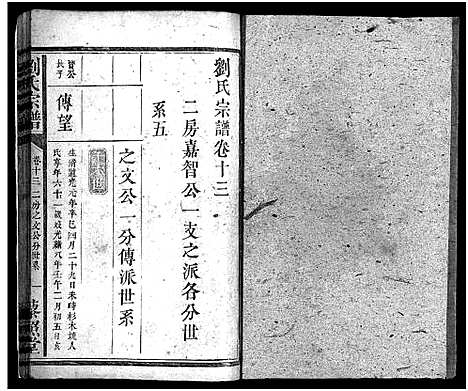 劉氏宗譜卷十三
二房嘉智公一支之派各分世
系五
之文公一分傳派世系
傳望
長子
生清道光元年辛巳四月二十九日未時杉木坡人
氏享年六十二歲歿光緒八年壬午二月初五日亥
劉氏宗譜
卷十三 二房之文公分世系
一